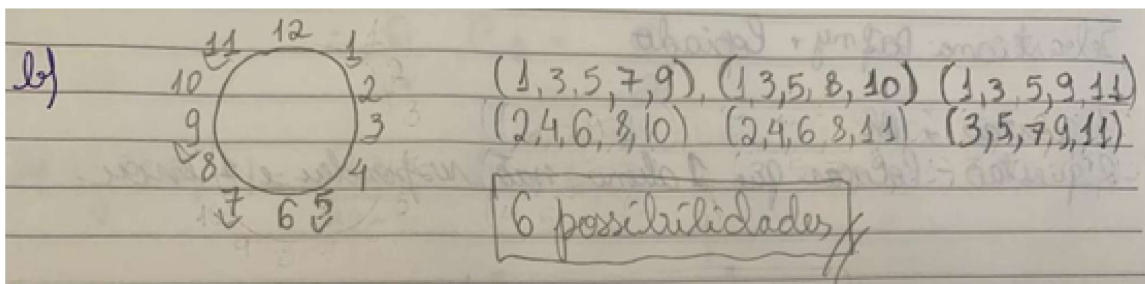 b)
12
11 1
10 2
9 3
8 4
7 6 5
(1,3,5,7,9), (1,3,5,8,10) (1,3,5,9,11)
(2,4,6,8,10) (2,4,6,8,11) (3,5,7,9,11)
6 possibilidades